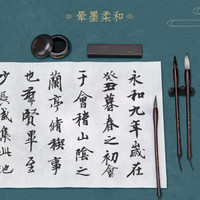 暈墨柔和
永和九年歲在
癸丑暮春之初會
于會稽山陰之
蘭亭脩稧事
也羣賢畢至
少長咸集此地